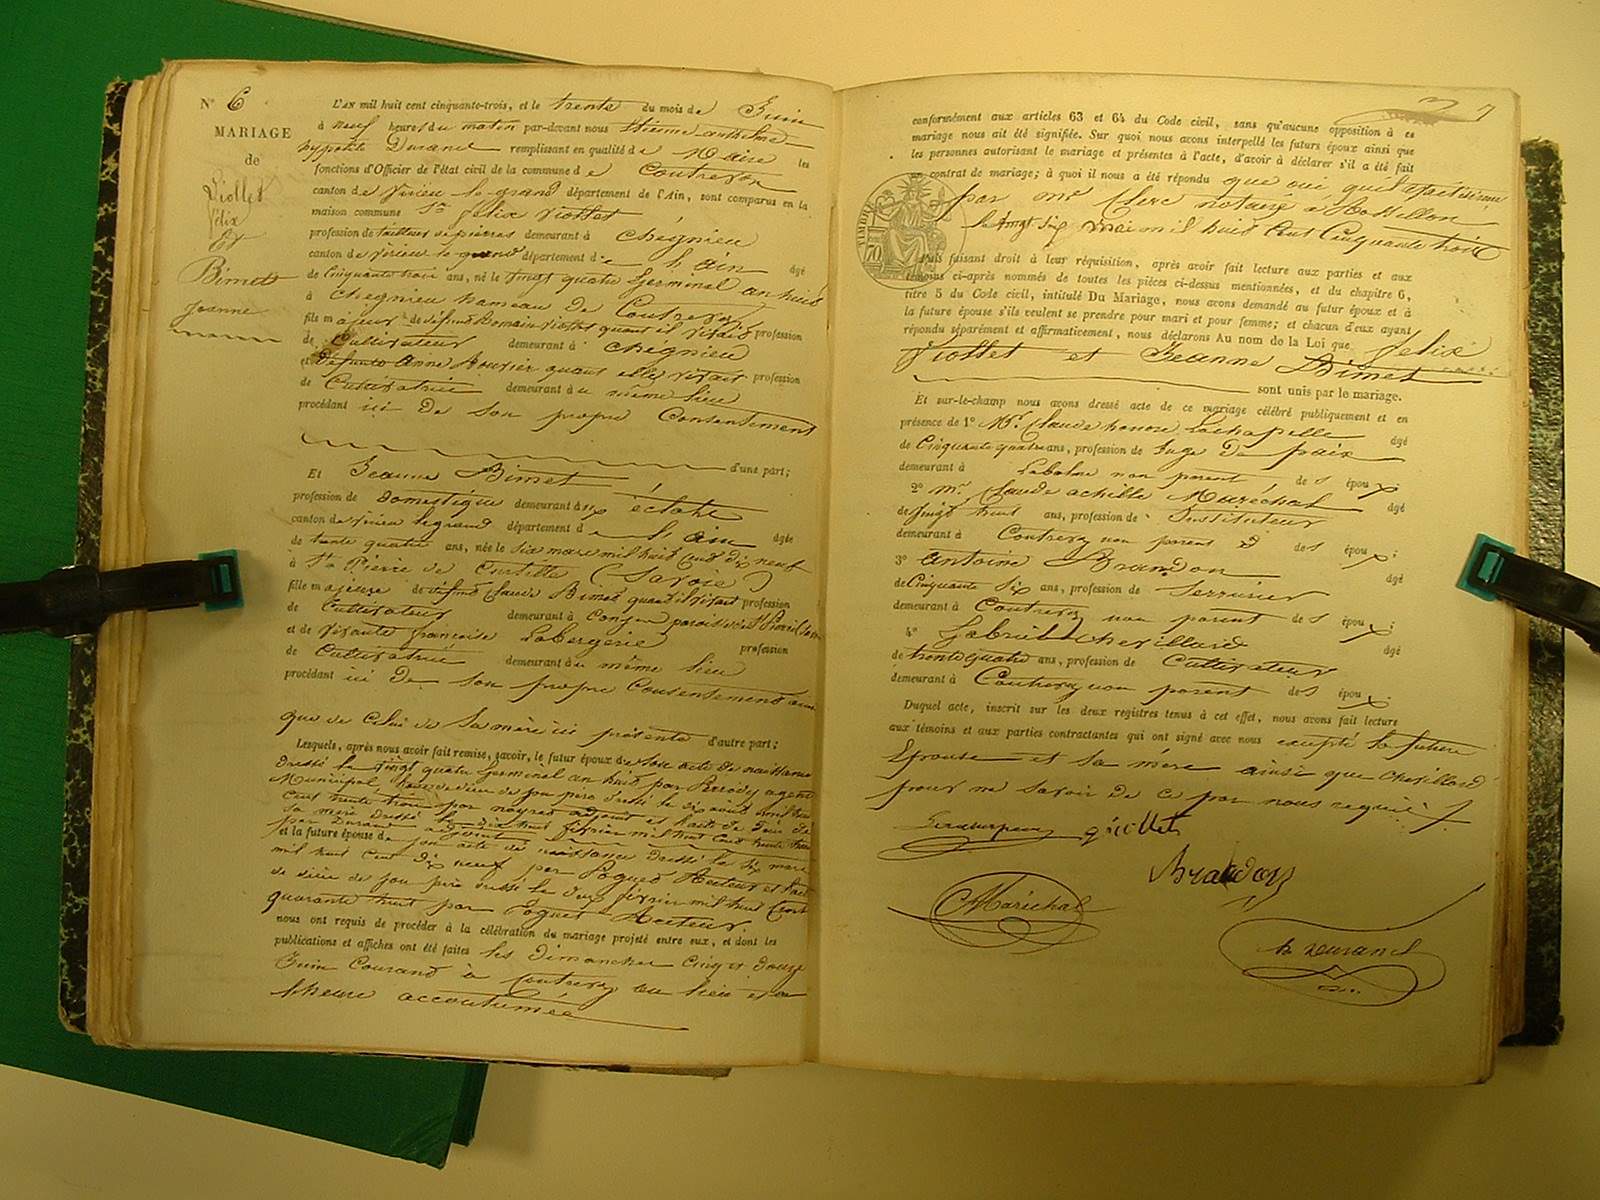 N° 6
MARIAGE
de
Viollet
félix
Et
Bimet
Jeanne
L'AN mil huit cent cinquante-trois, et le trente du mois de Juin
à neuf heures du matin par-devant nous Etienne anthelme
hyppolite Durand remplissant en qualité de Maire les
fonctions d'Officier de l'état civil de la commune de Contrevoz
canton de Virieu le grand département de l'Ain, sont comparus en la
maison commune Sr félix Viollet
profession de tailleur de pierres demeurant à Chégnieu
canton de Virieu le grand département de l'ain âgé
de Cinquante trois ans, né le vingt quatre Germinal an huit
à Chegnieu hameau de Contrevoz
fils majeur de défunt Romain Viollet quant il vivait profession
de Cultivateur demeurant à Chégnieu
et défunte Anne quant elle vivait profession
de Cultivatrice demeurant au même lieu
procédant ici de son propre Consentement
d'une part;
Et Jeanne Bimet
profession de domestique demeurant à
canton de Virieu legrand département de l'ain âgée
de trente quatre ans, née le six mars mil huit cent dix neuf
à St Pierre de Curtille (Savoie)
fille majeure de défunt Claude Bimet quand il vivait profession
de Cultivateur demeurant à Conjux paroisse de St Pierre
et de vivante françoise Labergerie profession
de Cultivatrice demeurant au même lieu
procédant ici de son propre Consentement ainsi
que de Celui de Sa mère ici présente d'autre part;
Lesquels, après nous avoir fait remise, savoir, le futur époux de Son acte de naissance
dressé le vingt quatre Germinal an huit par agent
Municipal, de son père dressé le dix août mil huit
cent trente trois par adjoint et de
sa mère dressé le dix huit février mil huit cent trente
par Durand adjoint
et la future épouse de son acte de naissance dressé le six mars
mil huit cent dix neuf par Poguet Recteur et
de de son père dressé le deux février mil huit Cent
quarante huit par Poguet Recteur
nous ont requis de procéder à la célébration du mariage projeté entre eux, et dont les
publications et affiches ont été faites les Dimanches Cinq et douze
Juin Courant à Contrevoz au lieu et à
l'heure accoutumée
7
conformément aux articles 63 et 64 du Code civil, sans qu'aucune opposition à ce
mariage nous ait été signifiée. Sur quoi nous avons interpellé les futurs époux ainsi que
les personnes autorisant le mariage et présentes à l'acte, d'avoir à déclarer s'il a été fait
un contrat de mariage; à quoi il nous a été répondu que oui,
par me Clerc notaire à Rossillon
le Vingt Six Mai mil huit Cent Cinquante trois
TIMBRE
70
Puis faisant droit à leur réquisition, après avoir fait lecture aux parties et aux
témoins ci-après nommés de toutes les pièces ci-dessus mentionnées, et du chapitre 6,
titre 5 du Code civil, intitulé Du Mariage, nous avons demandé au futur époux et à
la future épouse s'ils veulent se prendre pour mari et pour femme; et chacun d'eux ayant
répondu séparément et affirmativement, nous déclarons Au nom de la Loi que félix
Viollet et Jeanne Bimet
sont unis par le mariage.
Et sur-le-champ nous avons dressé acte de ce mariage célébré publiquement et en
présence de 1° Mr. Claude honoré Lachapelle âgé
de Cinquante quatre ans, profession de Juge de paix
demeurant à Labalme non parent des époux;
2° mr Claude achille Maréchal âgé
de Vingt huit ans, profession de Instituteur
demeurant à Contrevoz non parent des époux;
3° antoine Brandon âgé
de Cinquante Six ans, profession de Serrurier
demeurant à Contrevoz non parent des époux;
4° Gabriel Chevillard âgé
de trente quatre ans, profession de Cultivateur
demeurant à Contrevoz non parent des époux.
Duquel acte, inscrit sur les deux registres tenus à cet effet, nous avons fait lecture
aux témoins et aux parties contractantes qui ont signé avec nous excepté la future
Epouse et sa mère ainsi que Chevillard
pour ne savoir de ce par nous requis
Viollet
Brandon
Maréchal
h Durand